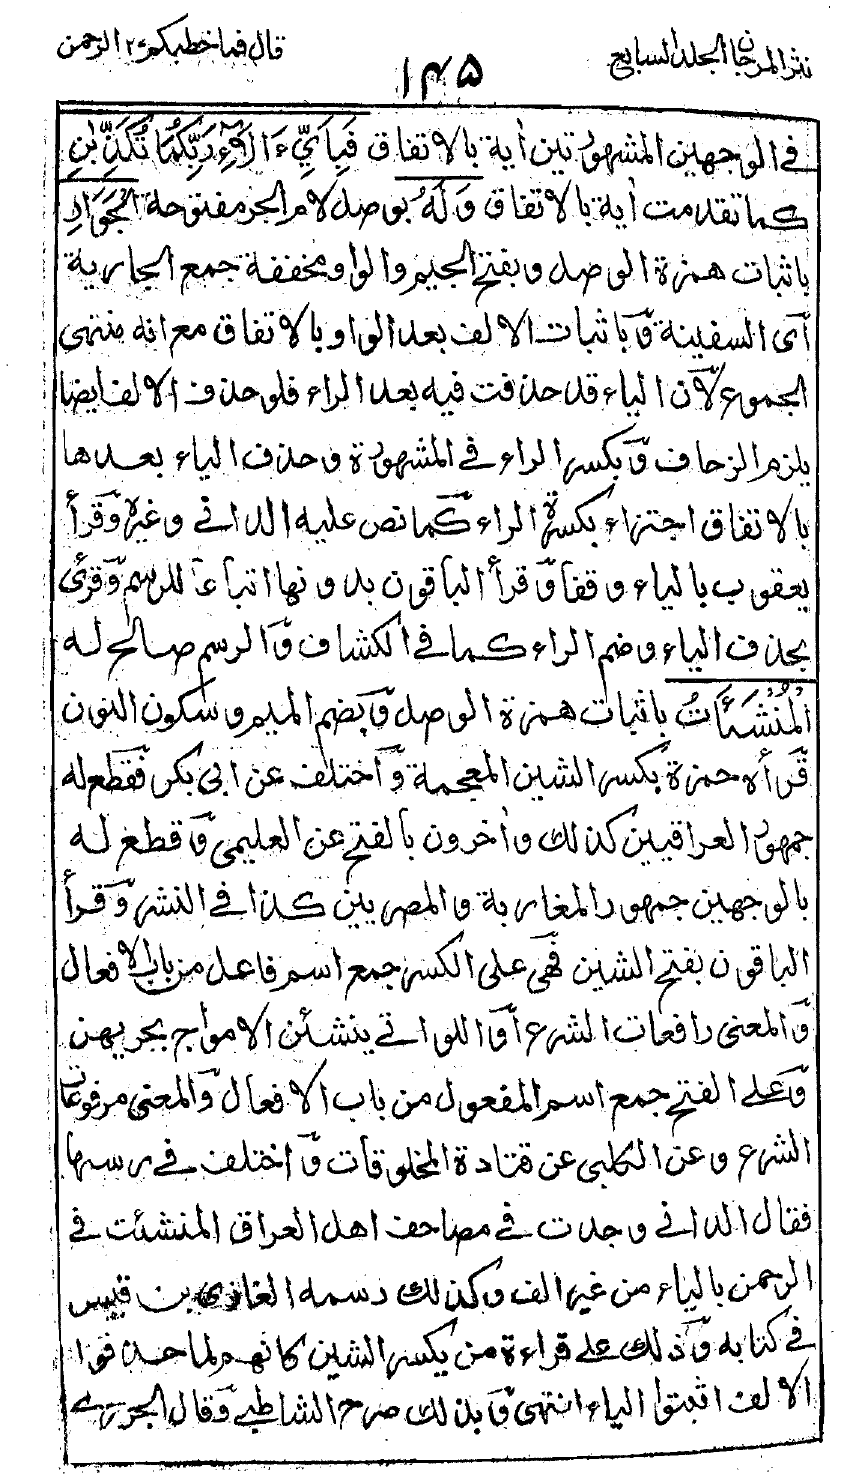 نثر المرجان الجلد السابع
۱۴۵
قال فما خطبكم ٢٧ الرحمن
في الوجهين المشهورتين أية بالاتفاق فَبِأَيِّ ءَالَآءِ رَبِّكُمَا تُكَذِّبٰنِ
كما تقدمت أية بالاتفاق وَلَهُ بوصل لام الجر مفتوحة الْجَوَارِ
باثبات همزة الوصل و بفتح الجيم والواو مخففة جمع الجارية
اى السفينة و باثبات الالف بعد الواو بالاتفاق مع انه منتهى
الجموع لان الياء قد حذفت فيه بعد الراء فلو حذف الالف ايضا
يلزم الزحاف و بكسر الراء في المشهورة و حذف الياء بعدها
بالاتفاق اجتزاء بكسرة الراء كما نص عليه الداني و غيره و قرأ
يعقوب بالياء وقفا و قرأ الباقون بدونها اتباعا للرسم و قرئ
بحذف الياء و ضم الراء كما في الكشاف و الرسم صالح له
الْمُنْشَئَاتُ باثبات همزة الوصل و بضم الميم و سكون النون
قرأه حمزة بكسر الشين المعجمة و اختلف عن ابى بكر فقطع له
جمهور العراقيين كذلك و أخرون بالفتح عن العليمى و قطع له
بالوجهين جمهور المغاربة و المصريين كذا في النشر و قرأ
الباقون بفتح الشين فهى على الكسر جمع اسم فاعل من باب الافعال
و المعنى رافعات الشرع او اللواتي ينشئن الامواج بجريهن
و على الفتح جمع اسم المفعول من باب الافعال و المعنى مرفوعات
الشرع و عن الكلبى عن قتادة المخلوقات و اختلف في رسمها
فقال الداني وجدت في مصاحف اهل العراق المنشئت في
الرحمن بالياء من غير الف و كذلك رسمه الغازى بن قيس
في كتابه و ذلك على قراءة من يكسر الشين كانهم لما حذفوا
الالف اثبتوا الياء انتهى و بذلك صرح الشاطبي و قال الجزري